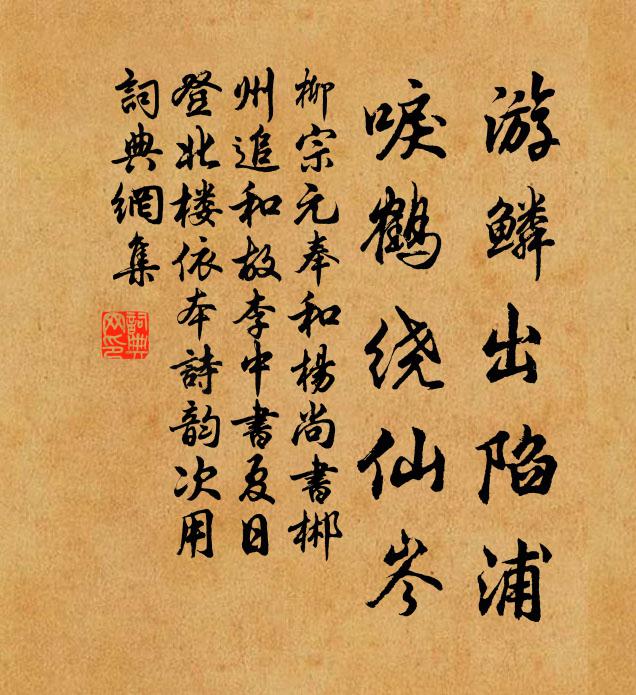 游鳞出陷浦
唳鹤绕仙岑
柳宗元奉和楊尚書郴
州追和故李中書夏日
登北楼依本詩韵次用
詞典網集
詞典
网印